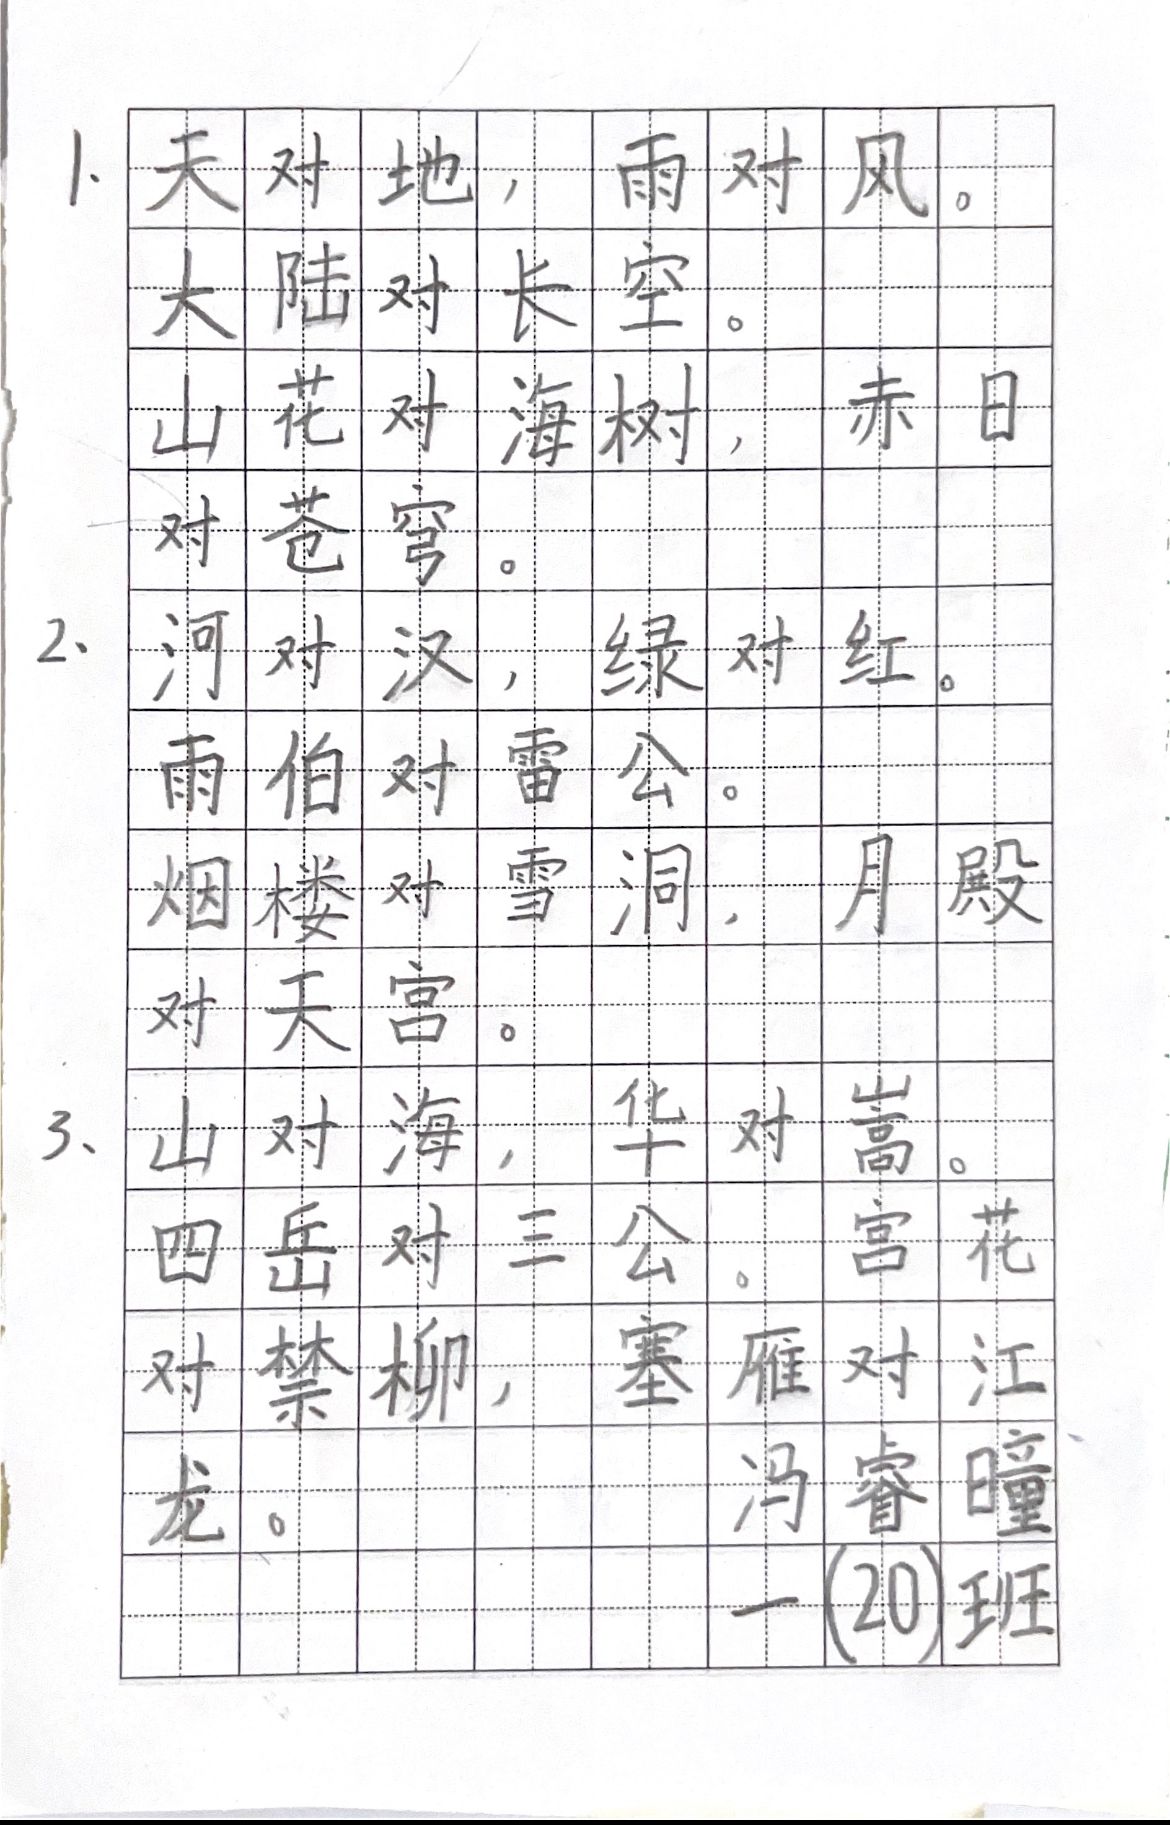 1. 天对地，雨对风。
大陆对长空。
山花对海树，赤日
对苍穹。
2、河对汉，绿对红。
雨伯对雷公。
烟楼对雪洞，月殿
对天宫。
3、山对海，华对嵩。
四岳对三公。宫花
对禁柳，塞雁对江
龙。 冯睿曈
一(20)班